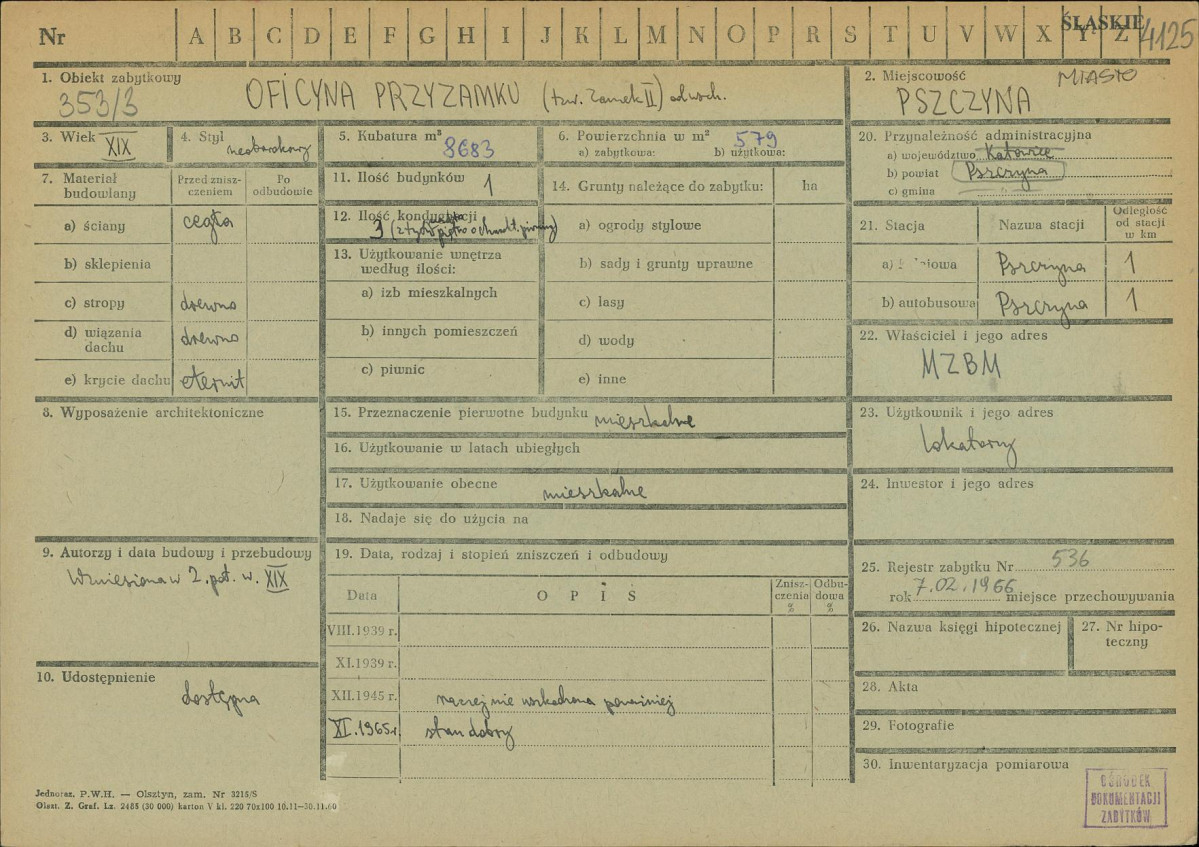 Nr A B C D E F G H I J K L M N O P R S T U V W X Y Z ŚLĄSKIE 4125
1. Obiekt zabytkowy
353/3 OFICYNA PRZYZAMKU (tzw. Zamek II) od wsch.
2. Miejscowość MIASTO
PSZCZYNA
3. Wiek XIX
4. Styl neobarokowy
5. Kubatura m³ 8683
6. Powierzchnia w m² 579
a) zabytkowa: b) użytkowa:
20. Przynależność administracyjna
a) województwo Katowice
b) powiat Pszczyna
c) gmina
7. Materiał budowlany
Przed znisz-
czeniem
Po
odbudowie
a) ściany cegła
b) sklepienia
c) stropy drewno
d) wiązania
dachu drewno
e) krycie dachu eternit
11. Ilość budynków 1
12. Ilość kondygnacji
3 (z tych piętro
13. Użytkowanie wnętrza
według ilości:
a) izb mieszkalnych
b) innych pomieszczeń
c) piwnic
14. Grunty należące do zabytku: ha
a) ogrody stylowe
b) sady i grunty uprawne
c) lasy
d) wody
e) inne
21. Stacja Nazwa stacji
Odległość
od stacji
w km
a) Pszczyna 1
b) autobusowa Pszczyna 1
22. Właściciel i jego adres
MZBM
8. Wyposażenie architektoniczne
15. Przeznaczenie pierwotne budynku mieszkalne
16. Użytkowanie w latach ubiegłych
17. Użytkowanie obecne mieszkalne
18. Nadaje się do użycia na
23. Użytkownik i jego adres
lokatorzy
24. Inwestor i jego adres
9. Autorzy i data budowy i przebudowy
Wzniesiona w 2. poł. w. XIX
19. Data, rodzaj i stopień zniszczeń i odbudowy
Data OPIS
Znisz-
czenia
%
Odbu-
dowa
%
VIII.1939 r.
XI.1939 r.
XII.1945 r. raczej nie uszkodzona
XI.1965 r. stan dobry
25. Rejestr zabytku Nr 536
rok 7.02.1966 miejsce przechowywania
26. Nazwa księgi hipotecznej
27. Nr hipo-
teczny
10. Udostępnienie
dostępna
28. Akta
29. Fotografie
30. Inwentaryzacja pomiarowa
OŚRODEK
DOKUMENTACJI
ZABYTKÓW
Jednoraz. P.W.H. — Olsztyn, zam. Nr 3215/S
Olszt. Z. Graf. Lz. 2485 (30 000) karton V kl. 220 70x100 16.11—30.11.60